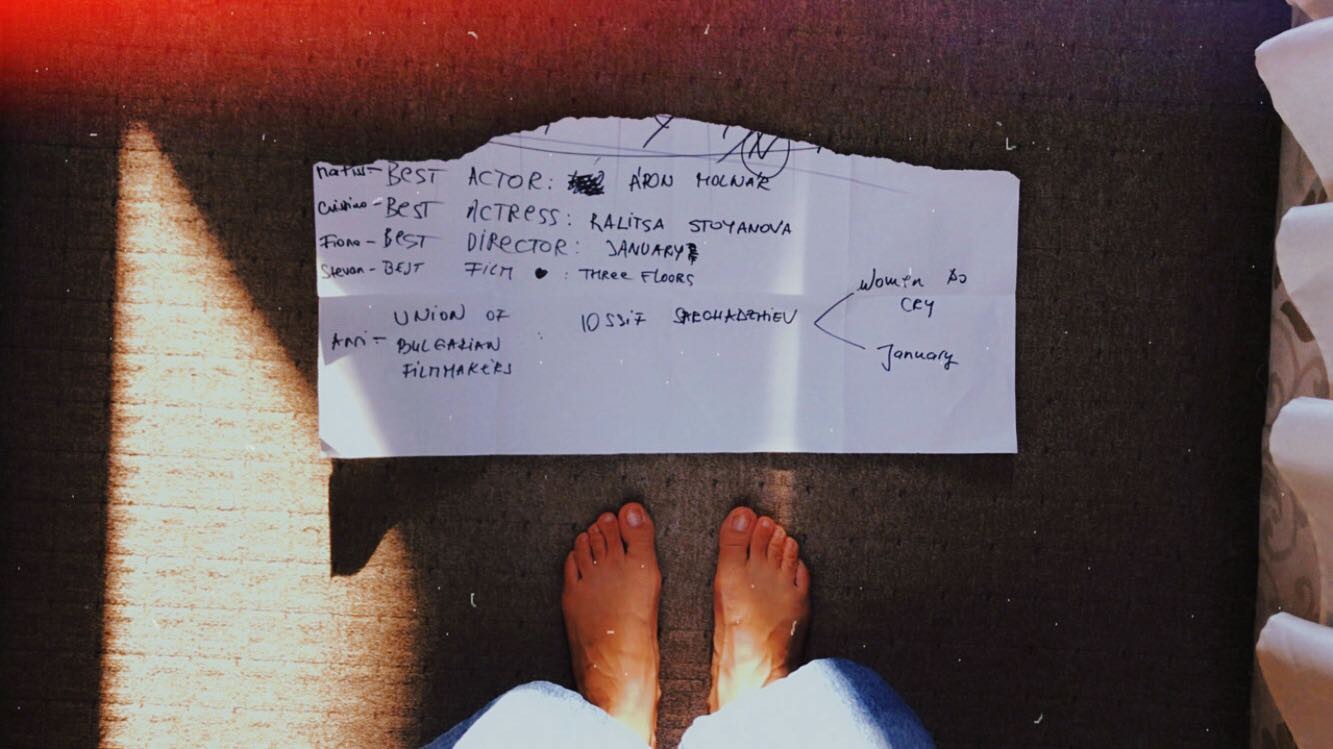 - BEST ACTOR: ÁRON MOLNÁR
Cristina - BEST ACTRESS: RALITSA STOYANOVA
Fiona - BEST DIRECTOR: JANUARY
Stevan - BEST FILM : THREE FLOORS
Ani - UNION OF BULGARIAN FILMMAKERS : IOSSIF SARCHADZHIEV
Women Do
CRY
January